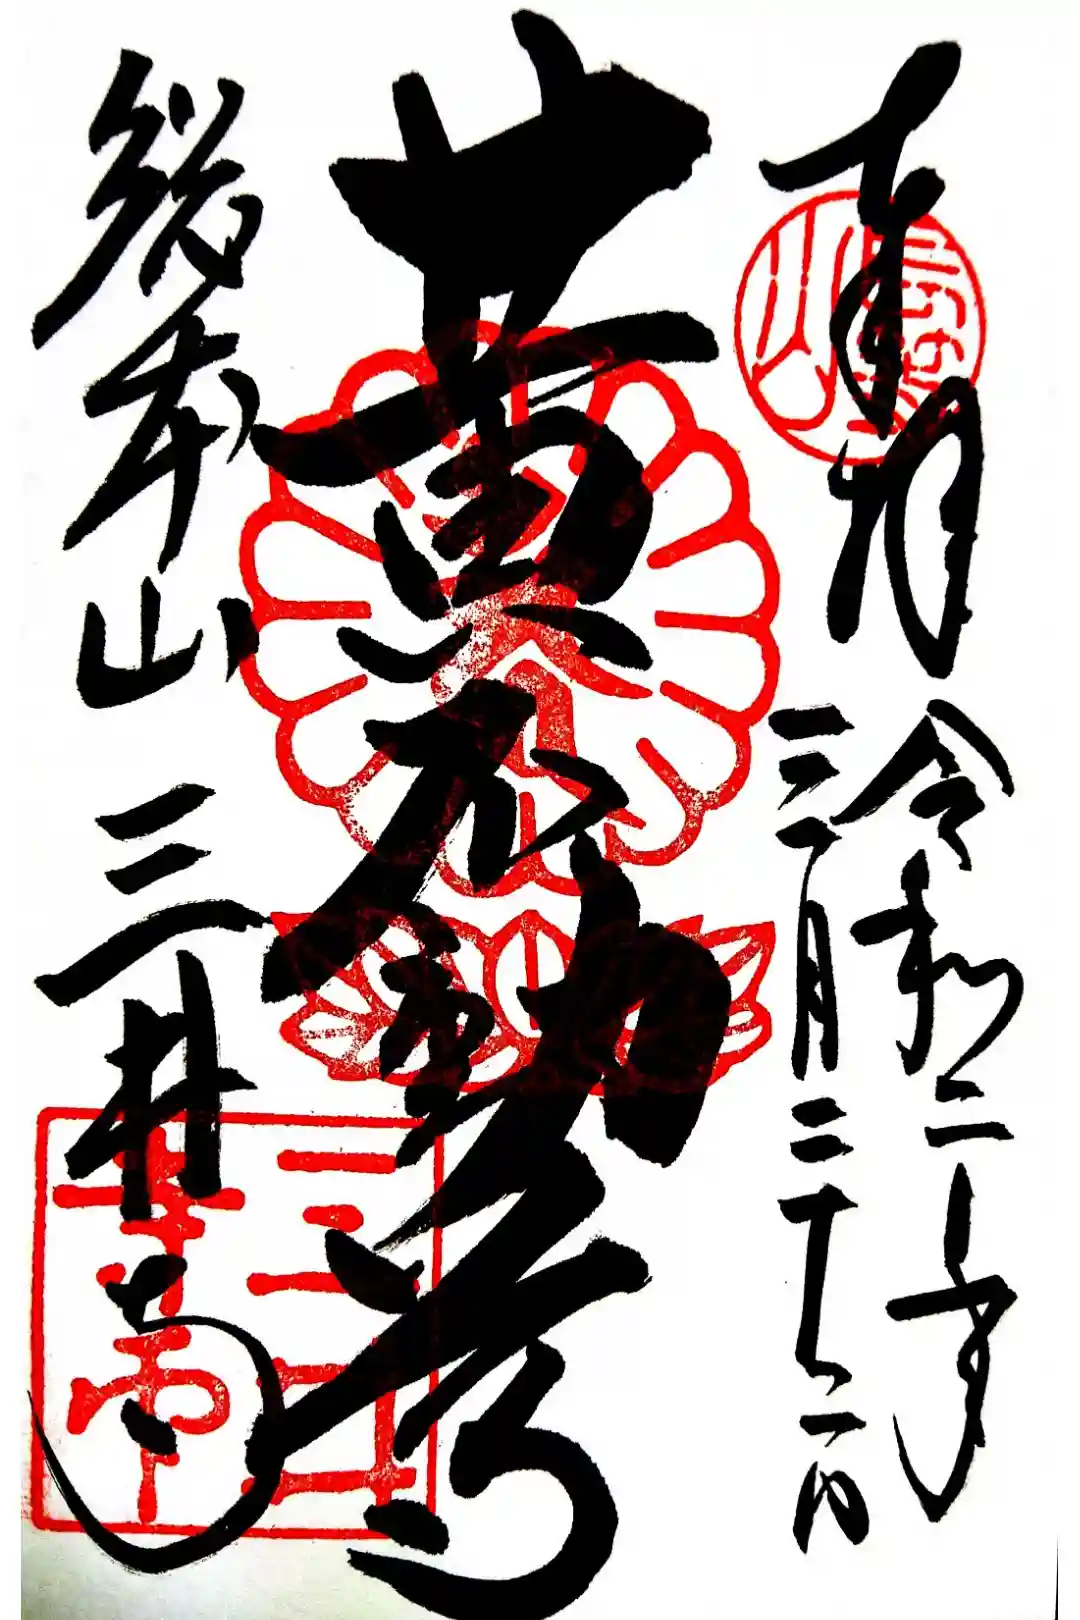 奉拝
令和二年
三月二十二日
黄不動尊
総本山 三井寺